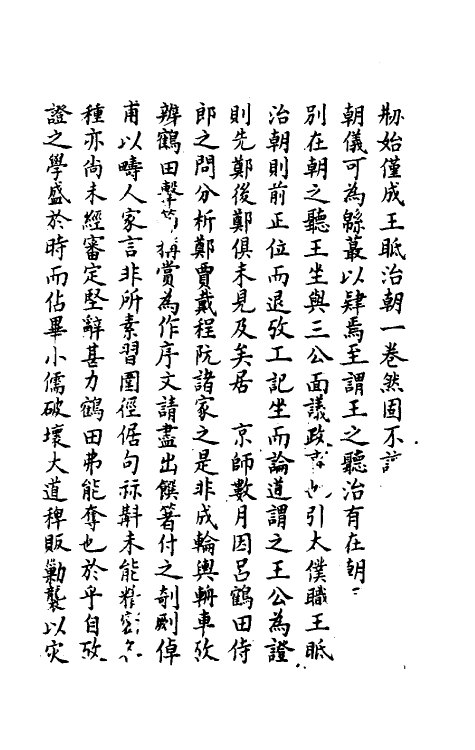 剏始僅成王眂治朝一卷然固不
朝儀可為緜蕞以肄焉至謂王之聽治有在朝
別在朝之聽王坐與三公面議政也引太僕職王眂
治朝則前正位而退攷工記坐而論道謂之王公為證
則先鄭後鄭俱未見及矣居 京師數月因呂鶴田侍
郎之問分析鄭賈戴程阮諸家之是非成輪輿輈車攷
辨鶴田擊節稱賞為作序文請盡出饌箸付之剞劂倬
甫以疇人家言非所素習圜徑倨句觩斞未能精密
種亦尚未經審定堅辭甚力鶴田弗能奪也於乎自攷
證之學盛於時而佔畢小儒破壞大道稗販勦襲以灾